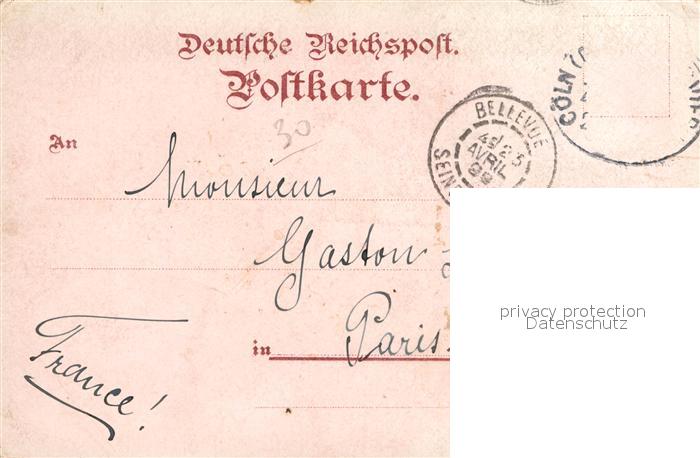 Deutsche Reichspost.
Postkarte.
30
An
Monsieur
Gaston
in Paris.
France!
BELLEVUE
25
AVRIL
SEINE
CÖLN
privacy protection
Datenschutz